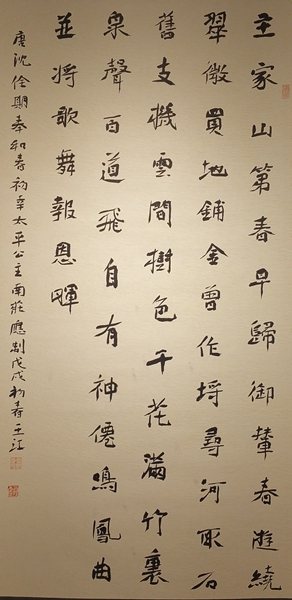 主家山第春早歸御輦春遊繞
翠微買地鋪金曾作埒尋河取石
舊支機雲間樹色千花滿竹裏
泉聲百道飛自有神僊鳴鳳曲
並將歌舞報恩暉
唐沈佺期奉和春初幸太平公主南莊應制戊戌初春王江